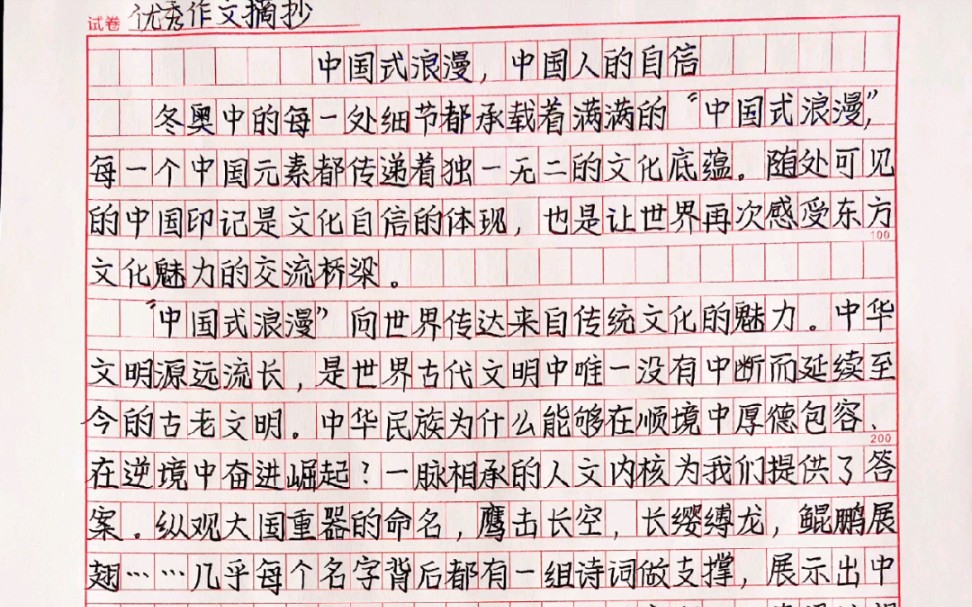 试卷 优秀作文摘抄
中国式浪漫，中国人的自信
冬奥中的每一处细节都承载着满满的“中国式浪漫”，
每一个中国元素都传递着独一无二的文化底蕴。随处可见
的中国印记是文化自信的体现，也是让世界再次感受东方
100
文化魅力的交流桥梁。
“中国式浪漫”向世界传达来自传统文化的魅力。中华
文明源远流长，是世界古代文明中唯一没有中断而延续至
今的古老文明。中华民族为什么能够在顺境中厚德包容、
200
在逆境中奋进崛起？一脉相承的人文内核为我们提供了答
案。纵观大国重器的命名，鹰击长空，长缨缚龙，鲲鹏展
翅……几乎每个名字背后都有一组诗词做支撑，展示出中